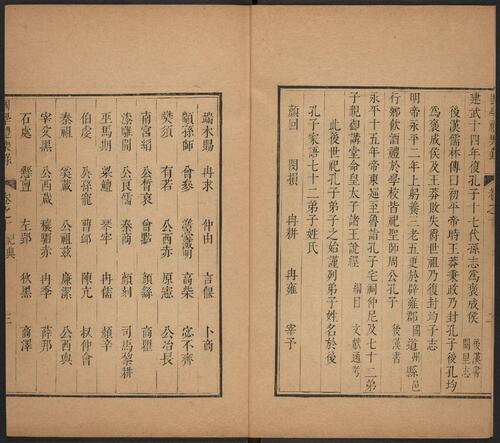 建武十四年復孔子十七代孫志為褒成侯 後漢書 闕里志
後漢儒林傳曰初平帝時王莽秉政乃封孔子後孔均
為褒成侯及王莽敗失爵世祖乃復封均子志
明帝永平二年上躬養三老五更於辟雍郡國道州縣邑
行鄉飲酒禮於學校皆祀聖師周公孔子 後漢書
永平十五年帝東廵至魯詣孔子宅祠仲尼及七十二弟
子親御講堂命皇太子諸王說經 綱目 文獻通考
此後世祀孔子弟子之始謹列弟子姓名於後
孔子家語七十二弟子姓氏
顏回 閔損 冉耕 冉雍 宰予
端木賜 冉求 仲由 言偃 卜商
顓孫師 曾參 澹臺滅明 高柴 宓不齊
樊須 有若 公西赤 原憲 公冶長
南宮縚 公晳哀 曾點 顏繇 商瞿
漆雕開 公良孺 秦商 顏刻 司馬黎耕
巫馬期 梁鱣 琴牢 冉儒 顏辛
伯虔 公孫寵 曹卹 陳亢 叔仲會
秦祖 奚蒧 公祖茲 廉潔 公西與
宰父黑 公西蒧 穰駟赤 冉季 薛邦
石處 懸亶 左郢 狄黑 商澤
卷之一 祀典 三